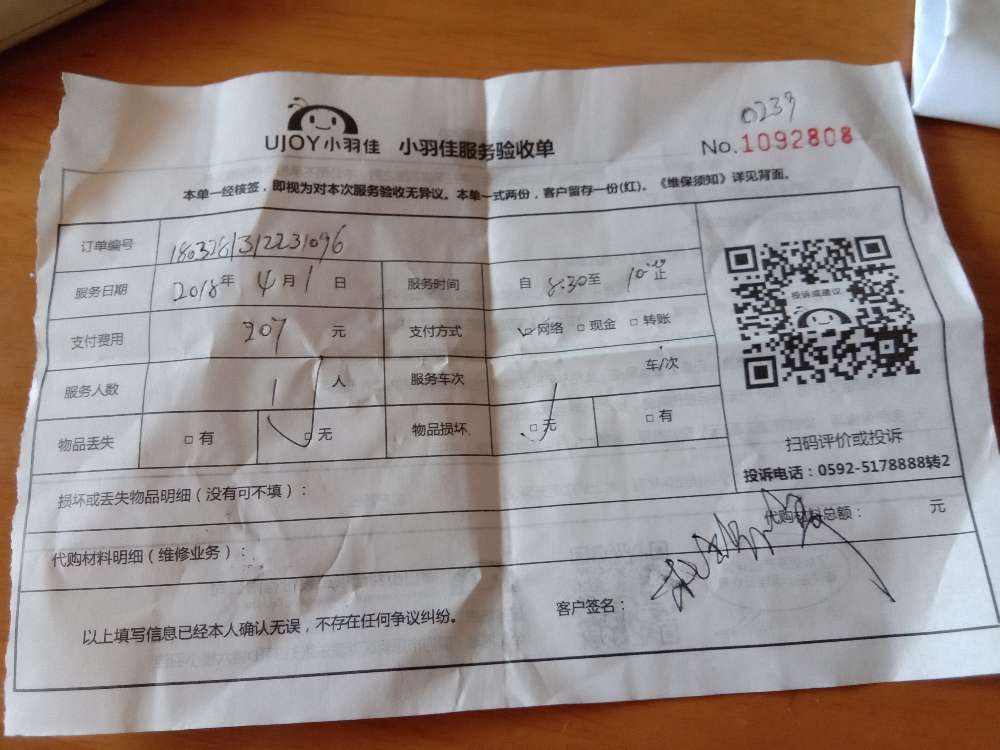 0239
UJOY小羽佳 小羽佳服务验收单 No.1092808
本单一经核签，即视为对本次服务验收无异议。本单一式两份，客户留存一份(红)。《维保须知》详见背面。
订单编号 1803281312231096
服务日期 2018年 4月 1日 服务时间 自 8:30至 10 止
支付费用 207 元 支付方式 □网络 □现金 □转账
服务人数 1 人 服务车次 车/次
物品丢失 □有 □无 物品损坏 □无 □有
投诉或建议
扫码评价或投诉
投诉电话：0592-5178888转2
损坏或丢失物品明细（没有可不填）：
代购材料总额： 元
代购材料明细（维修业务）：
客户签名：
以上填写信息已经本人确认无误，不存在任何争议纠纷。